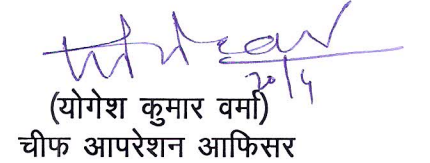 20/4
(योगेश कुमार वर्मा)
चीफ आपरेशन आफिसर